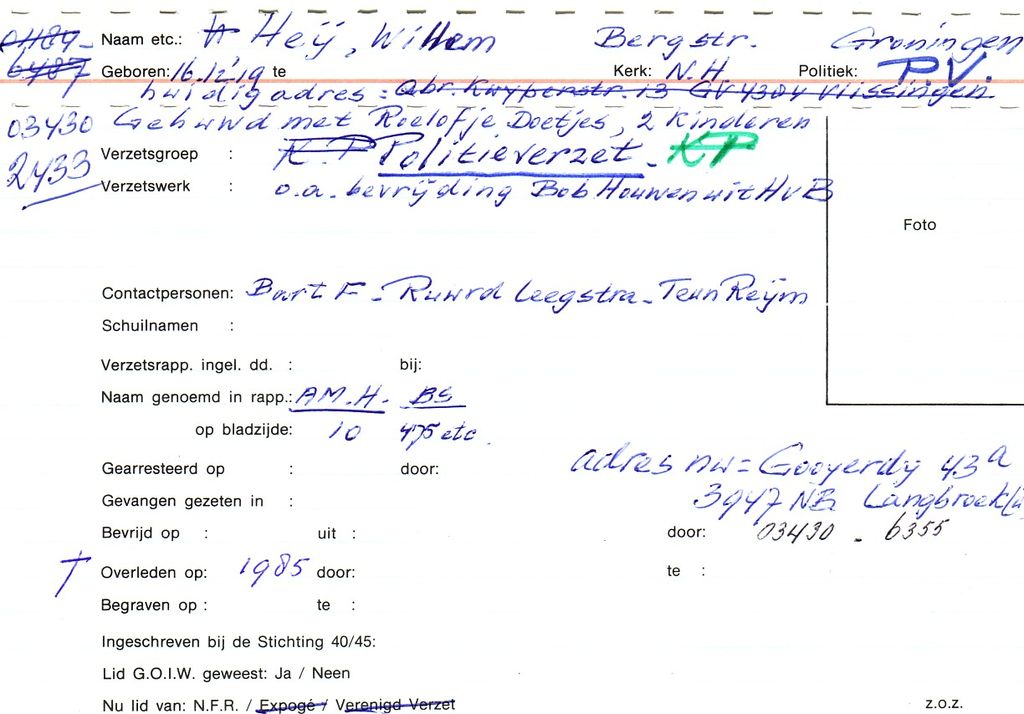 01184- Naam etc.: Heij, Willem Bergstr. Groningen
6487 Geboren: 16.12.'19 te Kerk: N.H. Politiek: P.V.
huidig adres = Abr. Kuyperstr. 13 GV 4304 Vlissingen
03430 Gehuwd met Roelofje Doetjes, 2 kinderen
2433 Verzetsgroep : KP Politieverzet - KP
Verzetswerk : o.a. bevrijding Bob Houwen uit HvB
Foto
Contactpersonen: Bart F - Ruurd Leegstra - Teun Reijm
Schuilnamen :
Verzetsrapp. ingel. dd. : bij:
Naam genoemd in rapp.: AM.H. BS
op bladzijde: 10 475 etc.
Gearresteerd op : door: adres nu = Gooyerdy 43a
Gevangen gezeten in : 3947 NB Langbroek
Bevrijd op : uit : door: 03430 - 6355
† Overleden op: 1985 door: te :
Begraven op : te :
Ingeschreven bij de Stichting 40/45:
Lid G.O.I.W. geweest: Ja / Neen
Nu lid van: N.F.R. / Expogé / Verenigd Verzet z.o.z.